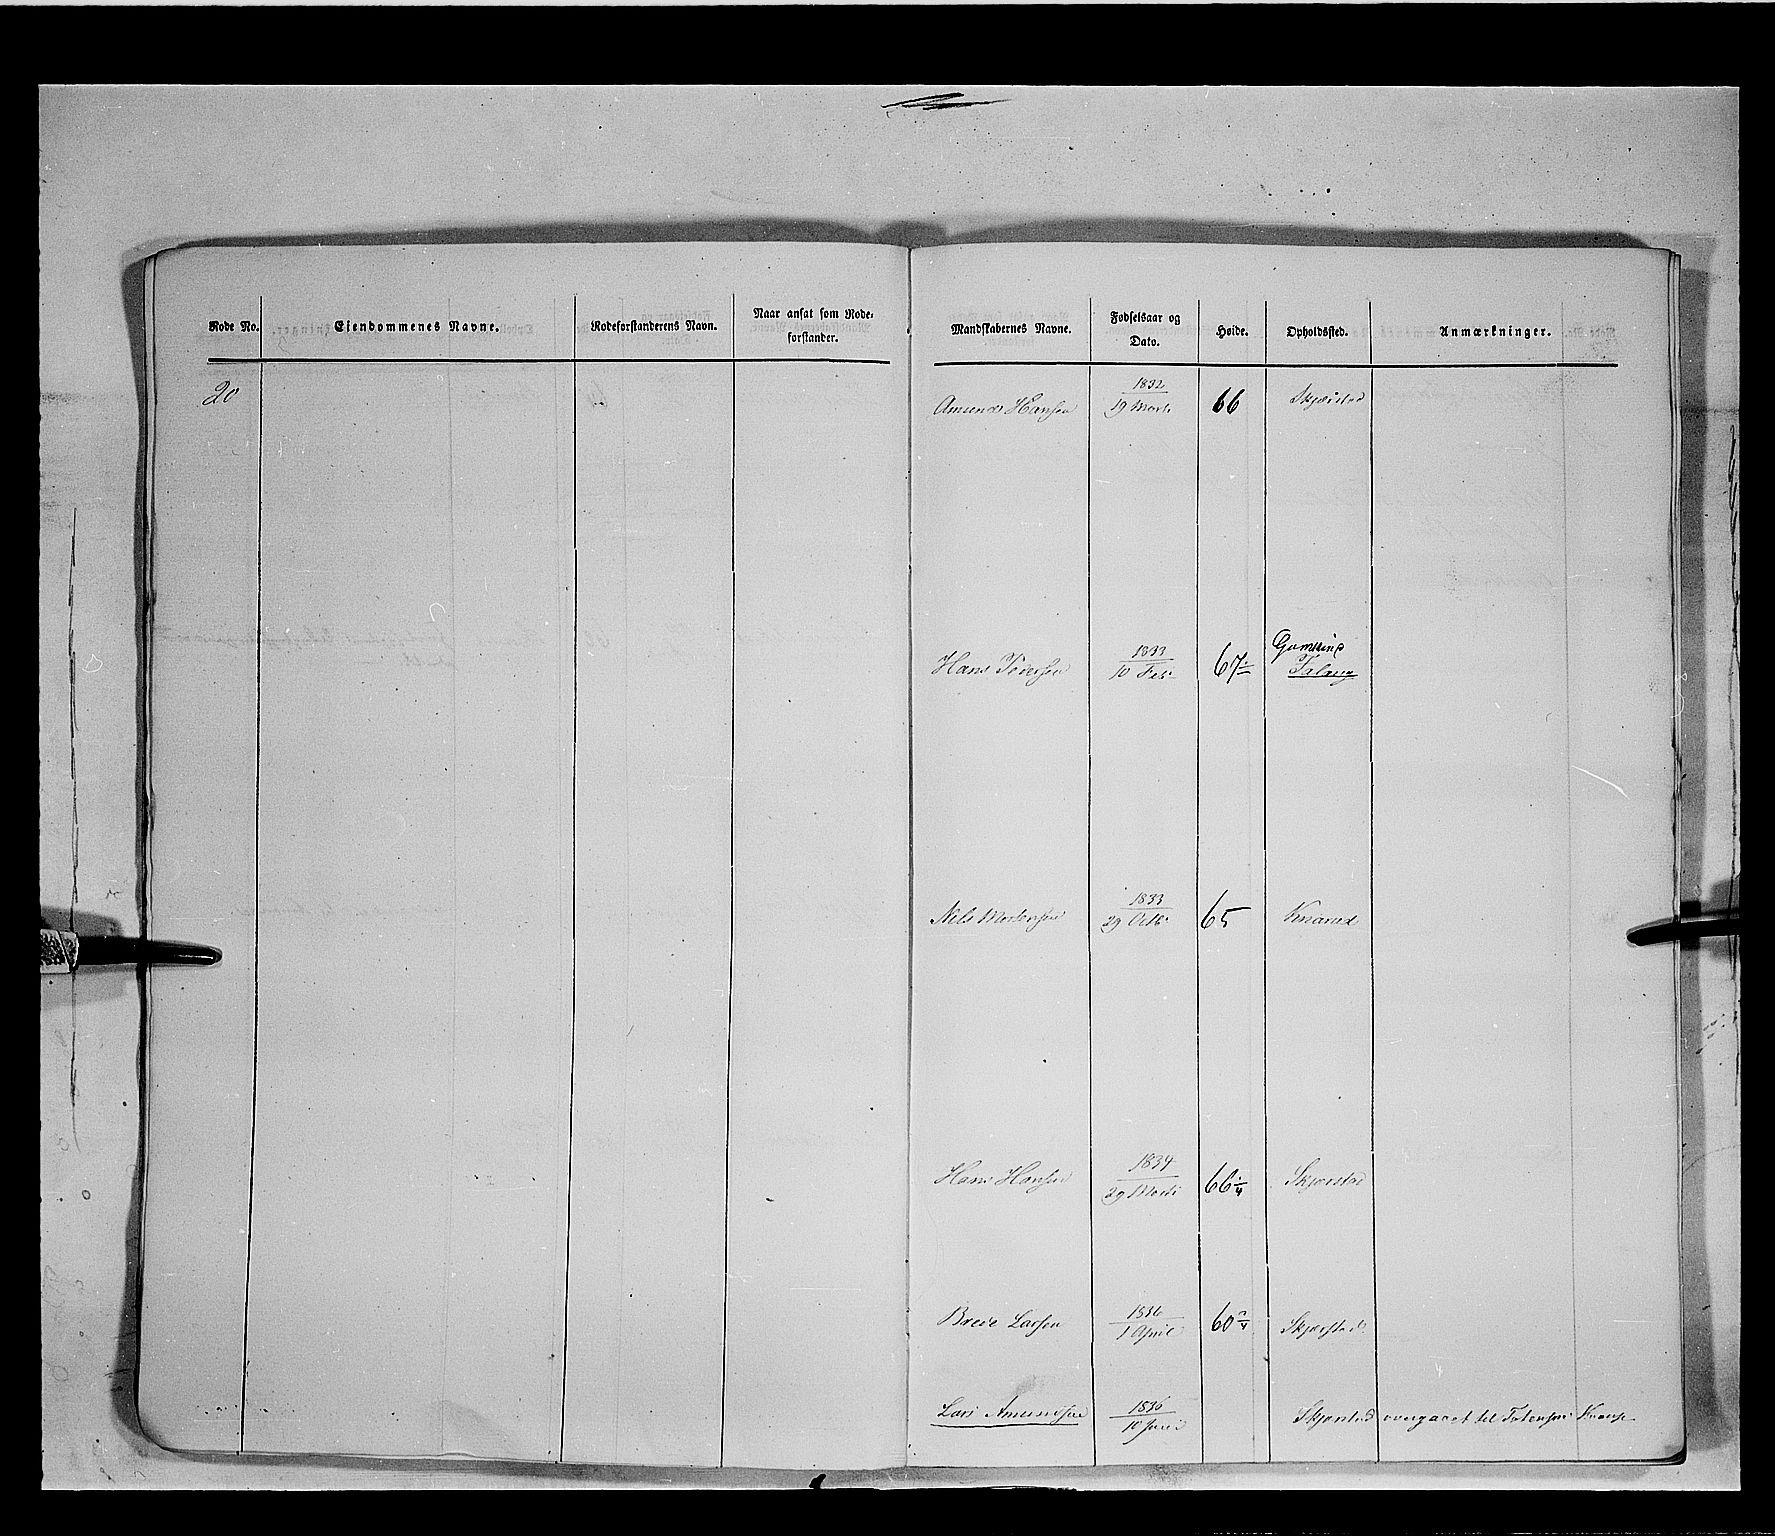 Rode No.
Eiendommenes Navne.
Rodeforstanderens Navn.
Naar ansat som Rode-
forstander.
Mandskabernes Navne.
Fødselsaar og
Dato.
Høide.
Opholdssted.
Anmærkninger.
20
Amund Hansen
1832
19 Marts
66
Skjærstad
Hans Pedersen
1833
10 Feb
67
Nils Mortensen
1833
29 Octb
65
Knarud
Hans Hansen
1834
29 Marts
66 1/4
Skjærstad
Brede Larsen
1836
1 April
60 3/4
Skjærstad
Lars Amundsen
1836
10 Juni
Skjærstad overgaaet til